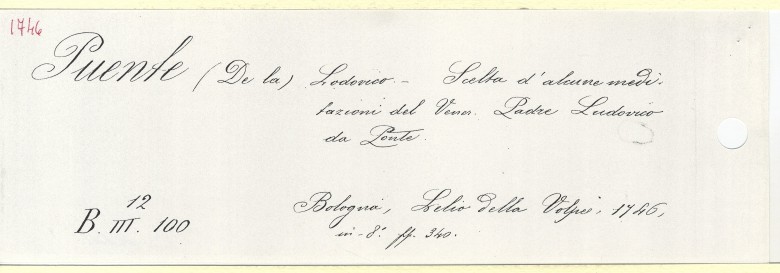 1746
Puente (De la) Lodovico. - Scelta d'alcune medi-
tazioni del Vener. Padre Ludovico
da Ponte.
Bologna, Lelio della Volpe, 1746,
in-8.° pp. 340.
12
B. III. 100